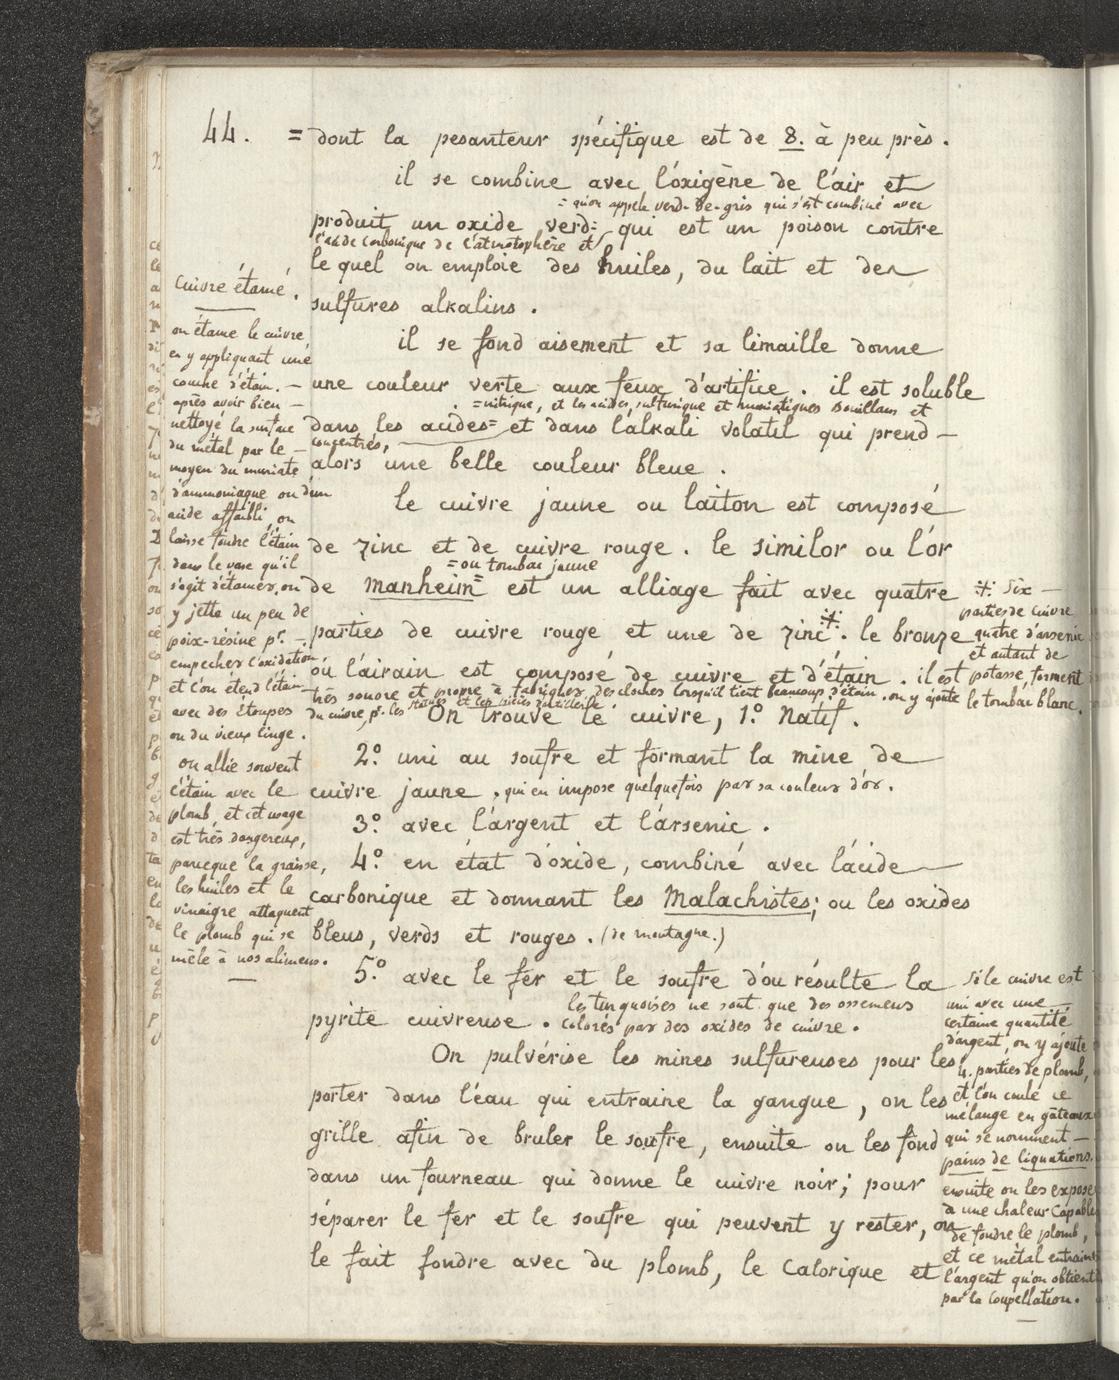 44. = dont la pesanteur spécifique est de 8. à peu près.
il se combine avec l'oxigène de l'air et
= qu'on appele verd-de-gris qui s'est combiné avec
produit un oxide verd= qui est un poison contre
l'acide carbonique de l'atmosphère et
le quel on emploie des huiles, du lait et des
sulfures alkalins.
il se fond aisement et sa limaille donne
une couleur verte aux feux d'artifice. il est soluble
= nitrique, et les acides sulfurique et muriatiques bouillans et
dans les acides= et dans l'alkali volatil qui prend —
concentrés,
alors une belle couleur bleue.
le cuivre jaune ou laiton est composé
de zinc et de cuivre rouge. le similor ou l'or
= ou tombac jaune
de Manheim= est un alliage fait avec quatre
parties de cuivre rouge et une de zinc⁜. le bronze
ou l'airain est composé de cuivre et d'étain. il est
très sonore et propre à fabriquer des cloches lorsqu'il tient beaucoup d'étain. on y ajoute
du cuivre, pr. les statues et les pièces d'artillerie.
On trouve le cuivre, 1.º Natif.
2.º uni au soufre et formant la mine de
cuivre jaune, qui en impose quelquefois par sa couleur d'or.
3.º avec l'argent et l'arsenic.
4.º en état d'oxide, combiné avec l'acide
carbonique et donnant les Malachistes; ou les oxides
bleus, verds et rouges. (de montagne.)
5.º avec le fer et le soufre d'ou résulte la
les turquoises ne sont que des ossemens
pyrite cuivreuse. colorés par des oxides de cuivre.
On pulvérise les mines sulfureuses pour les
porter dans l'eau qui entraine la gangue, on les
grille afin de bruler le soufre, ensuite on les fond
dans un fourneau qui donne le cuivre noir; pour
séparer le fer et le soufre qui peuvent y rester, on
le fait fondre avec du plomb, le calorique et
cuivre étamé.
on étame le cuivre
en y appliquant une
couche d'étain. —
après avoir bien —
nettoyé la surface
du métal par le —
moyen du muriate
d'ammoniaque ou d'un
acide affaibli, on
laisse fondre l'étain
dans le vase qu'il
s'agit d'étamer, on
y jette un peu de
poix-résine pr. —
empecher l'oxidation
et l'on étend l'étain
avec des étoupes
ou du vieux linge.
on allie souvent
l'étain avec le
plomb, et cet usage
est très dangereux,
parceque la graisse,
les huiles et le
vinaigre attaquent
le plomb qui se
mêle à nos alimens.
⁜ Six —
parties de cuivre
quatre d'arsenic
et autant de
potasse, forment
le tombac blanc.
Si le cuivre est
uni avec une
certaine quantité
d'argent, on y ajoute
4. parties de plomb,
et l'on coule ce
mélange en gâteaux
qui se nomment —
pains de liquations.
ensuite on les expose
à une chaleur capable
de fondre le plomb,
et ce métal entraine
l'argent qu'on obtient
par la coupellation.